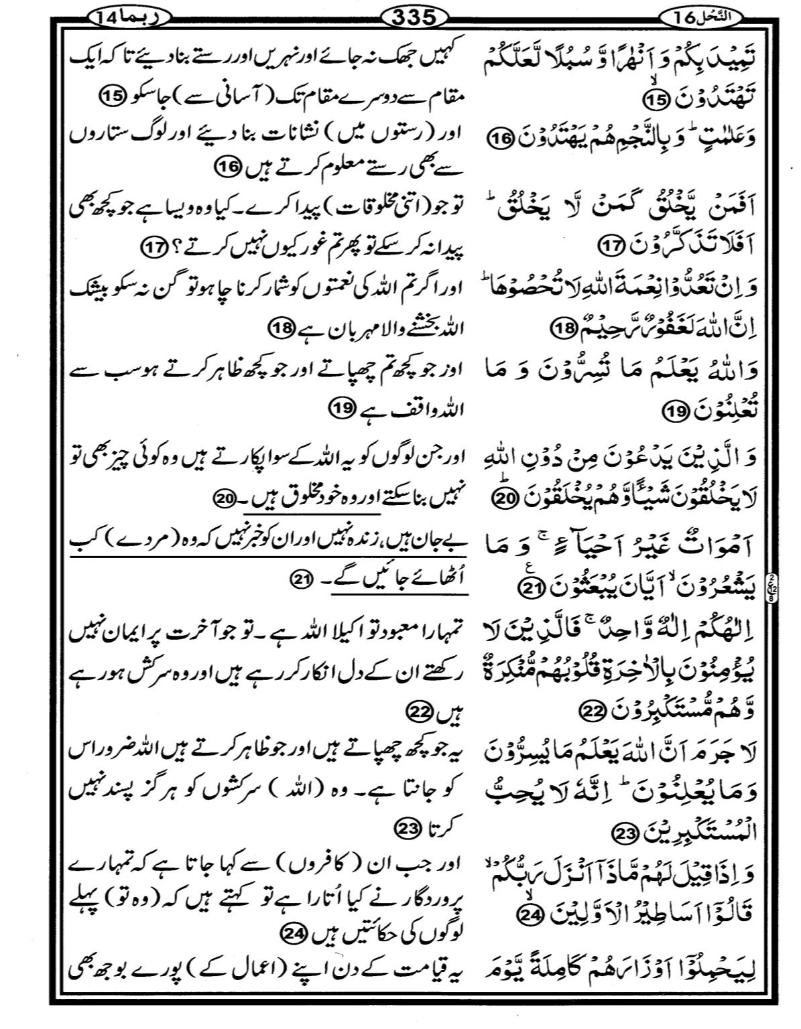 النَّحل 16
335
ربما 14
تَمِيْدَ بِكُمْ وَ اَنْهٰرًا وَّ سُبُلًا لَّعَلَّكُمْ
تَهْتَدُوْنَ ۙ 15
وَعَلٰمٰتٍ ؕ وَ بِالنَّجْمِ هُمْ يَهْتَدُوْنَ 16
اَفَمَنْ يَّخْلُقُ كَمَنْ لَّا يَخْلُقُ ؕ
اَفَلَا تَذَكَّرُوْنَ 17
وَ اِنْ تَعُدُّوْا نِعْمَةَ اللّٰهِ لَا تُحْصُوْهَا ؕ
اِنَّ اللّٰهَ لَغَفُوْرٌ رَّحِيْمٌ 18
وَ اللّٰهُ يَعْلَمُ مَا تُسِرُّوْنَ وَ مَا
تُعْلِنُوْنَ 19
وَ الَّذِيْنَ يَدْعُوْنَ مِنْ دُوْنِ اللّٰهِ
لَا يَخْلُقُوْنَ شَيْـًٔا وَّ هُمْ يُخْلَقُوْنَ ؕ 20
اَمْوَاتٌ غَيْرُ اَحْيَآءٍ ۚ وَ مَا
يَشْعُرُوْنَ ۙ اَيَّانَ يُبْعَثُوْنَ ع 21
اِلٰهُكُمْ اِلٰهٌ وَّاحِدٌ ۚ فَالَّذِيْنَ لَا
يُؤْمِنُوْنَ بِالْاٰخِرَةِ قُلُوْبُهُمْ مُّنْكِرَةٌ
وَّ هُمْ مُّسْتَكْبِرُوْنَ 22
لَا جَرَمَ اَنَّ اللّٰهَ يَعْلَمُ مَا يُسِرُّوْنَ
وَ مَا يُعْلِنُوْنَ ؕ اِنَّهٗ لَا يُحِبُّ
الْمُسْتَكْبِرِيْنَ 23
وَ اِذَا قِيْلَ لَهُمْ مَّا ذَاۤ اَنْزَلَ رَبُّكُمْ ۙ
قَالُوْۤا اَسَاطِيْرُ الْاَوَّلِيْنَ ۙ 24
لِيَحْمِلُوْۤا اَوْزَارَهُمْ كَامِلَةً يَّوْمَ
کہیں جھک نہ جائے اور نہریں اور رستے بنا دیئے تاکہ ایک
مقام سے دوسرے مقام تک (آسانی سے) جا سکو 15
اور (رستوں میں) نشانات بنا دیئے اور لوگ ستاروں
سے بھی رستے معلوم کرتے ہیں 16
تو جو (اتنی مخلوقات) پیدا کرے۔ کیا وہ ویسا ہے جو کچھ بھی
پیدا نہ کر سکے تو پھر تم غور کیوں نہیں کرتے؟ 17
اور اگر تم اللہ کی نعمتوں کو شمار کرنا چاہو تو گن نہ سکو بیشک
اللہ بخشنے والا مہربان ہے 18
اور جو کچھ تم چھپاتے اور جو کچھ ظاہر کرتے ہو سب سے
اللہ واقف ہے 19
اور جن لوگوں کو یہ اللہ کے سوا پکارتے ہیں وہ کوئی چیز بھی تو
نہیں بنا سکتے اور وہ خود مخلوق ہیں۔ 20
بے جان ہیں، زندہ نہیں اور ان کو خبر نہیں کہ وہ (مردے) کب
اُٹھائے جائیں گے۔ 21
تمہارا معبود تو اکیلا اللہ ہے۔ تو جو آخرت پر ایمان نہیں
رکھتے ان کے دل انکار کر رہے ہیں اور وہ سرکش ہو رہے
ہیں 22
یہ جو کچھ چھپاتے ہیں اور جو ظاہر کرتے ہیں اللہ ضرور اس
کو جانتا ہے۔ وہ (اللہ) سرکشوں کو ہرگز پسند نہیں
کرتا 23
اور جب ان (کافروں) سے کہا جاتا ہے کہ تمہارے
پروردگار نے کیا اُتارا ہے تو کہتے ہیں کہ (وہ تو) پہلے
لوگوں کی حکائتیں ہیں 24
یہ قیامت کے دن اپنے (اعمال کے) پورے بوجھ بھی